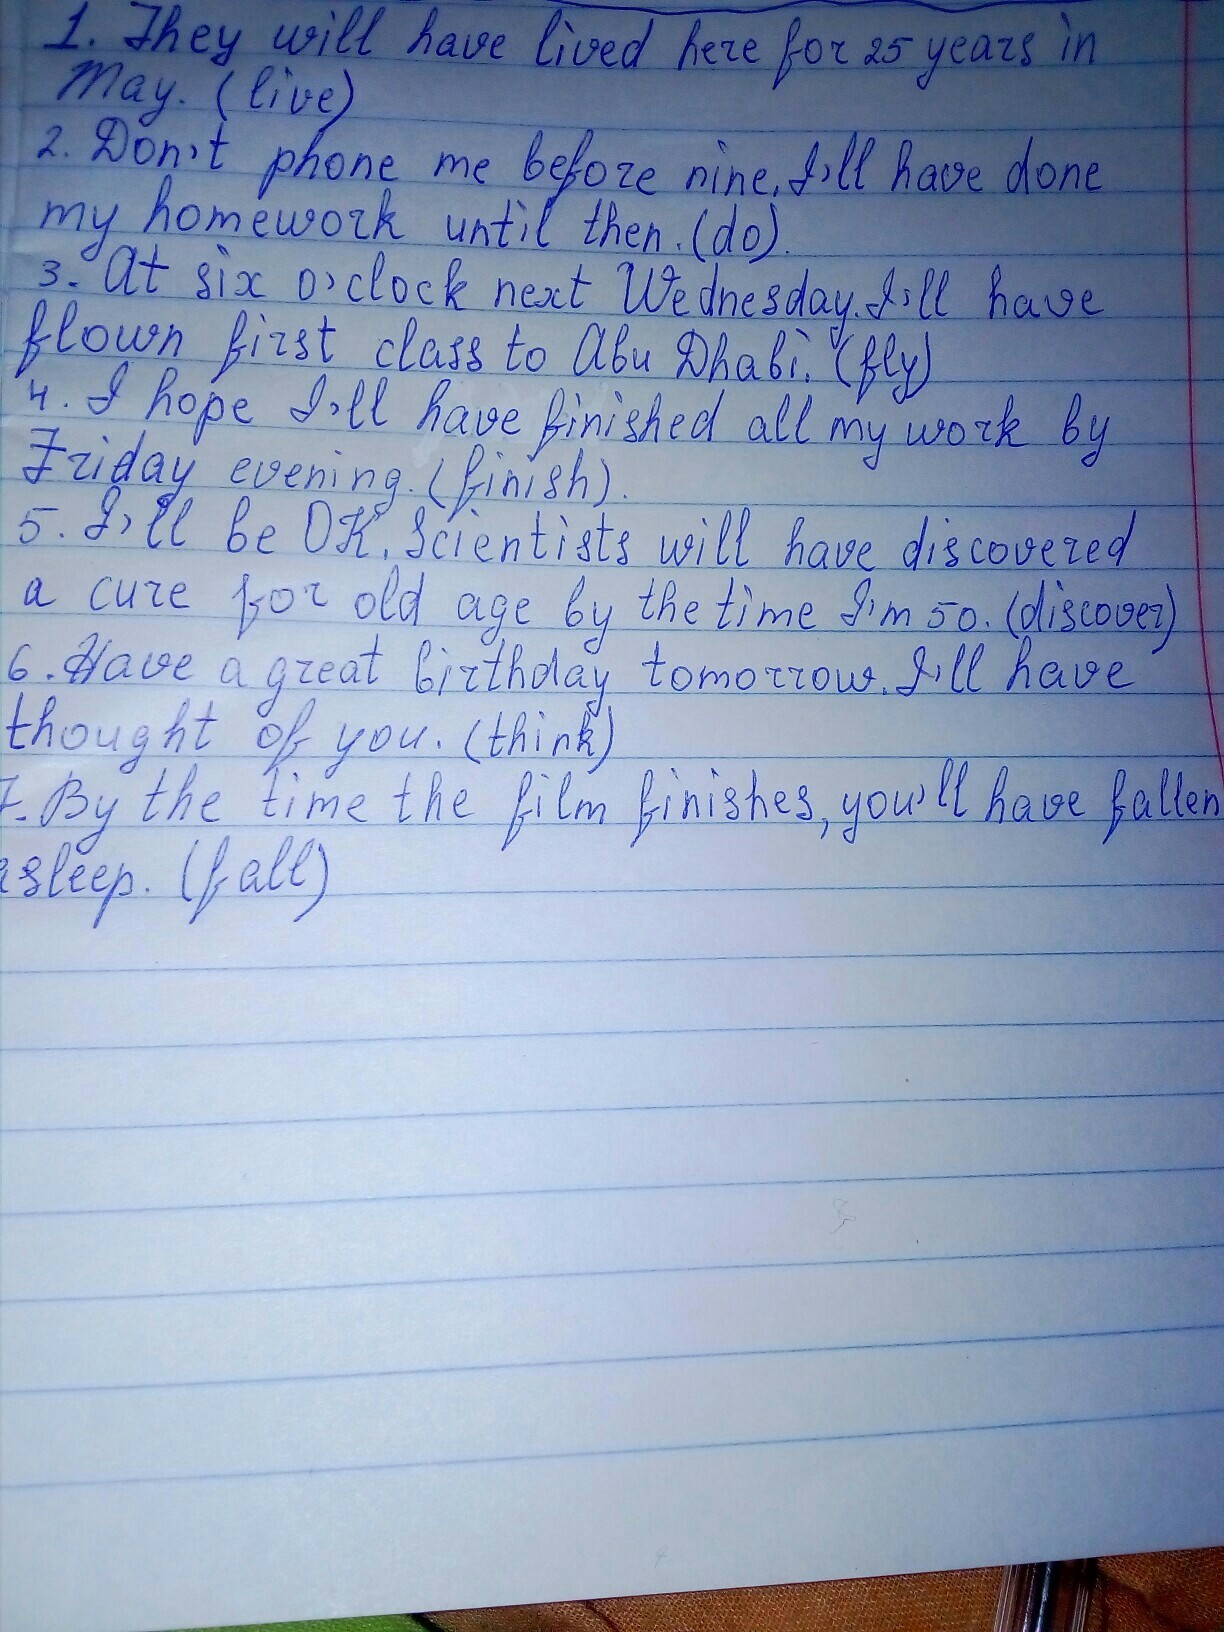 1. They will have lived here for 25 years in
May. (live)
2. Don't phone me before nine. I'll have done
my homework until then. (do).
3. At six o'clock next Wednesday. I'll have
flown first class to Abu Dhabi. (fly)
4. I hope I'll have finished all my work by
Friday evening. (finish).
5. I'll be OK. Scientists will have discovered
a cure for old age by the time I'm 50. (discover)
6. Have a great birthday tomorrow. I'll have
thought of you. (think)
7. By the time the film finishes, you'll have fallen
asleep. (fall)